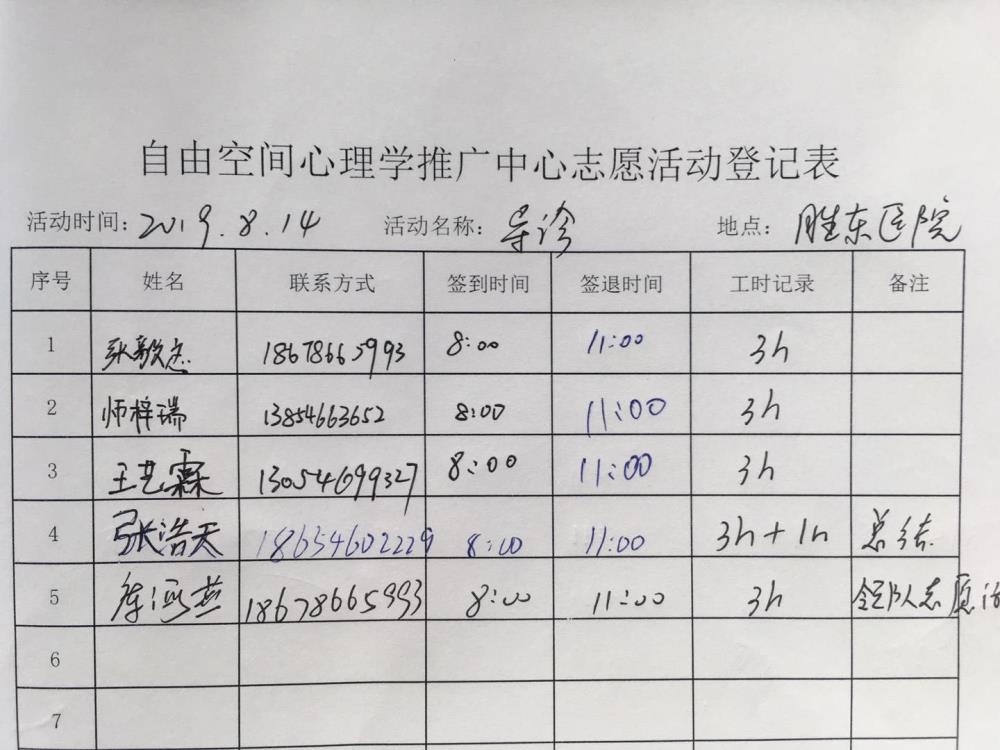 自由空间心理学推广中心志愿活动登记表
活动时间: 2019.8.14 活动名称: 导诊 地点: 胜东医院
序号 姓名 联系方式 签到时间 签退时间 工时记录 备注
1 张毅志 18678665993 8:00 11:00 3h
2 师梓瑞 13854663652 8:00 11:00 3h
3 王艺霖 13054699327 8:00 11:00 3h
4 张浩天 18654602229 8:00 11:00 3h+1h 总结
5 燕 18678665993 8:00 11:00 3h 领队志愿活
6
7